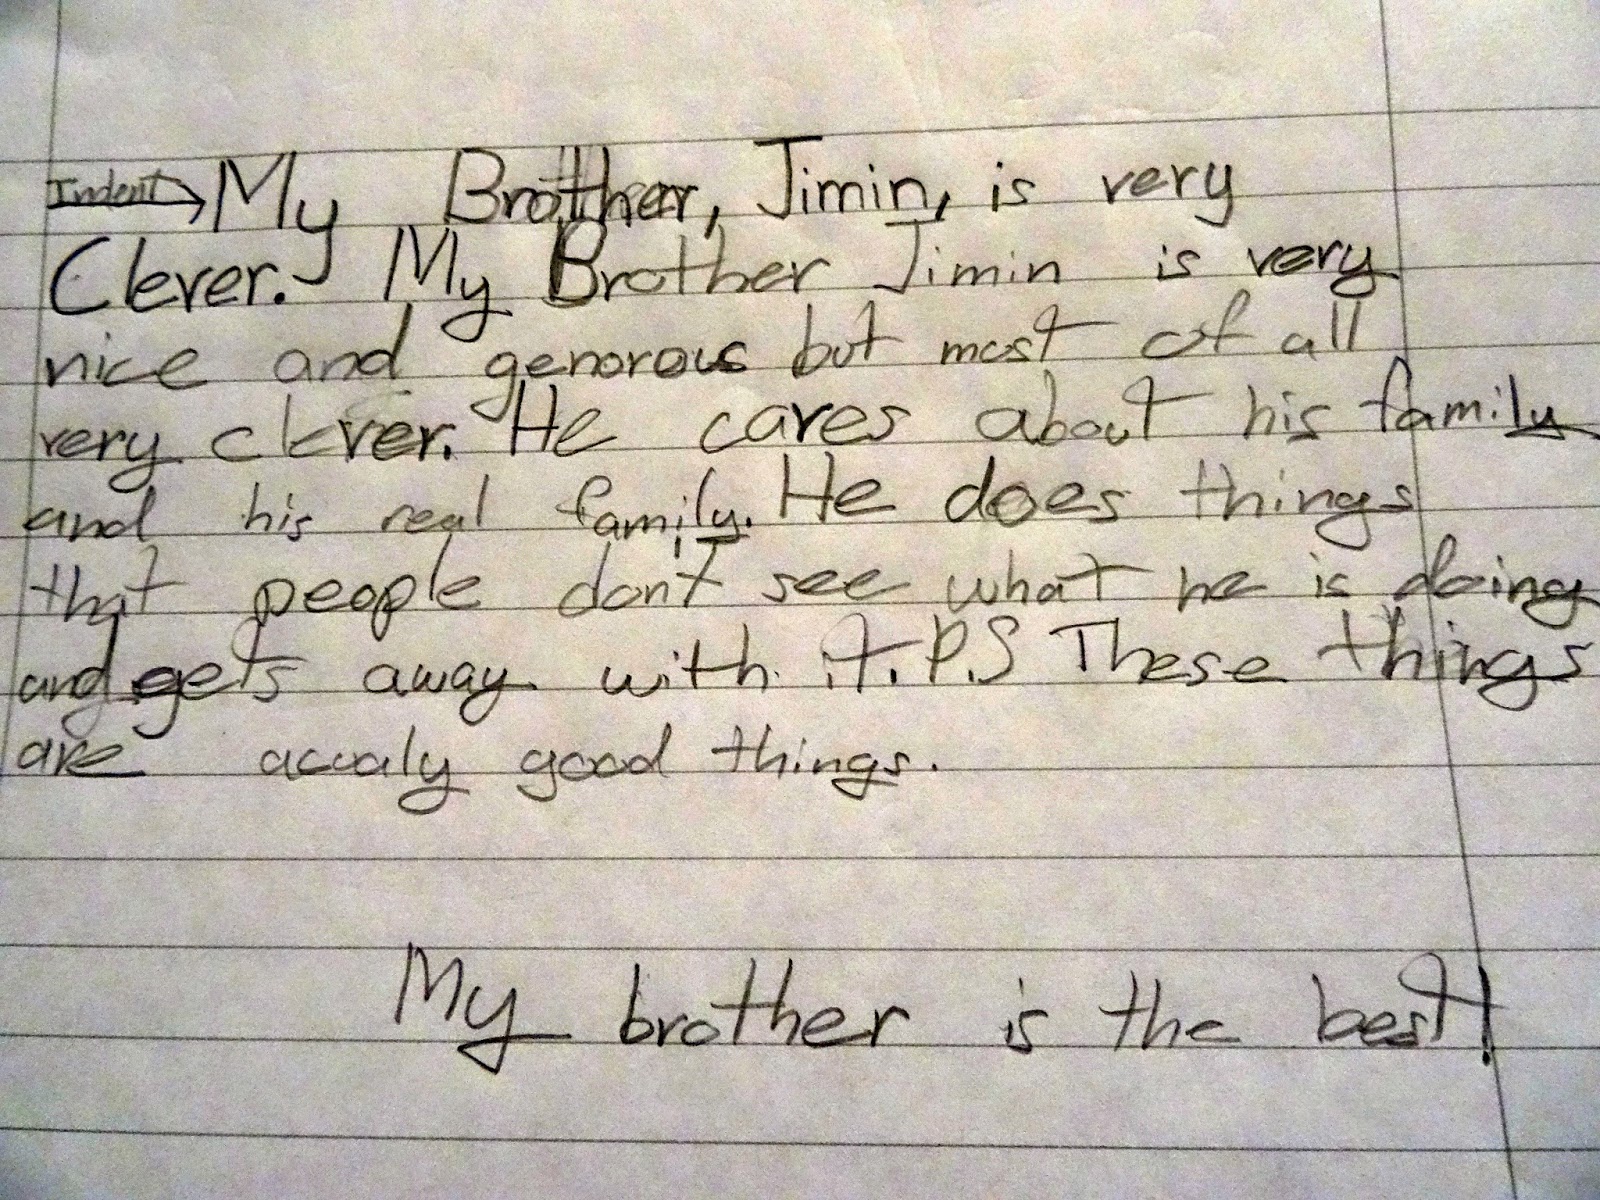 Indent→My Brother, Jimin, is very
Clever. My Brother Jimin is very
nice and genorous but most of all
very clever. He cares about his family
and his real family. He does things
that people don't see what he is doing
and gets away with it. P.S These things
are accualy good things.
My brother is the best!